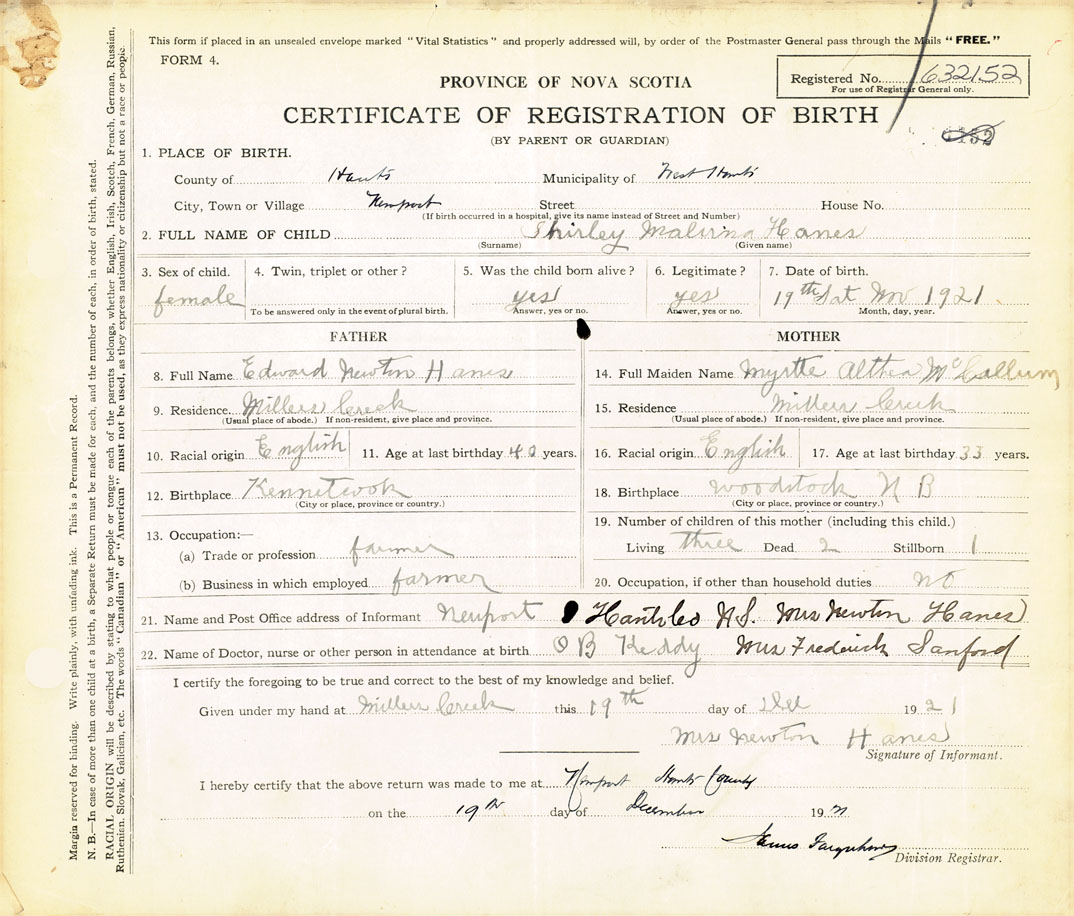 This form if placed in an unsealed envelope marked "Vital Statistics" and properly addressed will, by order of the Postmaster General pass through the Mails "FREE."
FORM 4.
PROVINCE OF NOVA SCOTIA
Registered No. 632152
For use of Registrar General only.
CERTIFICATE OF REGISTRATION OF BIRTH
(BY PARENT OR GUARDIAN)
1. PLACE OF BIRTH.
County of Hants Municipality of West Hants
City, Town or Village Newport Street House No.
(If birth occurred in a hospital, give its name instead of Street and Number)
2. FULL NAME OF CHILD Shirley Malirna Hanes
(Surname) (Given name)
3. Sex of child. 4. Twin, triplet or other? 5. Was the child born alive? 6. Legitimate? 7. Date of birth.
female yes yes 19th Sat Nov 1921
To be answered only in the event of plural birth. Answer, yes or no. Answer, yes or no. Month, day, year.
FATHER MOTHER
8. Full Name Edward Newton Hanes 14. Full Maiden Name Myrtle Althea McCallum
9. Residence Millers Creek 15. Residence Millers Creek
(Usual place of abode.) If non-resident, give place and province. (Usual place of abode.) If non-resident, give place and province.
10. Racial origin English 11. Age at last birthday 40 years. 16. Racial origin English 17. Age at last birthday 33 years.
12. Birthplace Kennetcook 18. Birthplace Woodstock N B
(City or place, province or country.) (City or place, province or country.)
13. Occupation:— 19. Number of children of this mother (including this child.)
(a) Trade or profession farmer Living three Dead 2 Stillborn 1
(b) Business in which employed farmer 20. Occupation, if other than household duties no
21. Name and Post Office address of Informant Newport Hants Co N.S. Mrs Newton Hanes
22. Name of Doctor, nurse or other person in attendance at birth O B Keddy Mrs Frederick Sanford
I certify the foregoing to be true and correct to the best of my knowledge and belief.
Given under my hand at Millers Creek this 19th day of Dec 1921
Mrs Newton Hanes
Signature of Informant.
I hereby certify that the above return was made to me at Newport Hants County
on the 19th day of December 1921
James Farquhar
Division Registrar.
Margin reserved for binding. Write plainly, with unfading ink. This is a Permanent Record.
N. B.—In case of more than one child at a birth, a Separate Return must be made for each, and the number of each, in order of birth, stated.
RACIAL ORIGIN will be described by stating to what people or tongue each of the parents belongs, whether English, Irish, Scotch, French, German, Russian,
Ruthenian, Slovak, Galician, etc. The words "Canadian" or "American" must not be used, as they express nationality or citizenship but not a race or people.